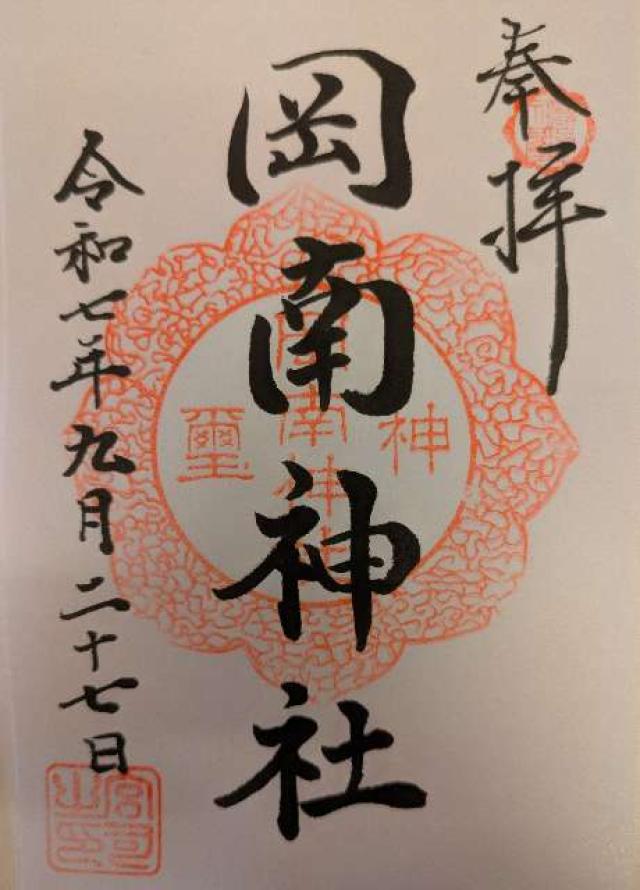 奉拝
岡南神社
令和七年九月二十七日
神璽
岡南神社
宮司之印